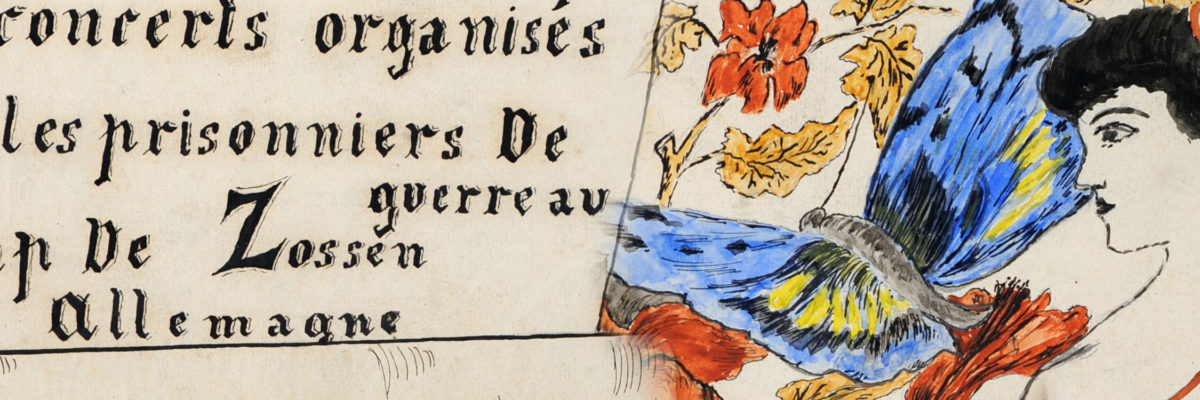 concerts organisés
les prisonniers De
guerre au
p De Zossen
Allemagne